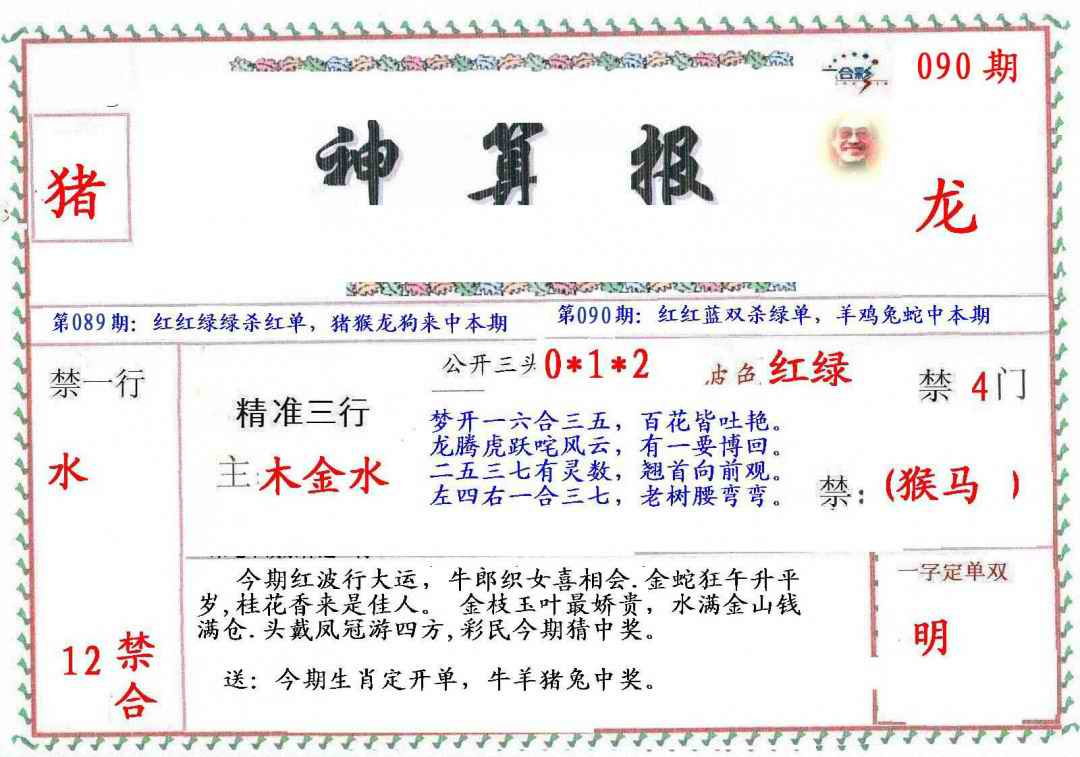 合彩
090 期
猪
神算报
龙
第089期：红红绿绿杀红单，猪猴龙狗来中本期
第090期：红红蓝双杀绿单，羊鸡兔蛇中本期
禁一行
水
12 禁
合
精准三行
主:木金水
公开三头 0*1*2
色 红绿
梦开一六合三五，百花皆吐艳。
龙腾虎跃咤风云，有一要博回。
二五三七有灵数，翘首向前观。
左四右一合三七，老树腰弯弯。
禁 4门
禁:(猴马 )
今期红波行大运，牛郎织女喜相会.金蛇狂午升平
岁,桂花香来是佳人。 金枝玉叶最娇贵，水满金山钱
满仓.头戴凤冠游四方,彩民今期猜中奖。
送：今期生肖定开单，牛羊猪兔中奖。
一字定单双
明